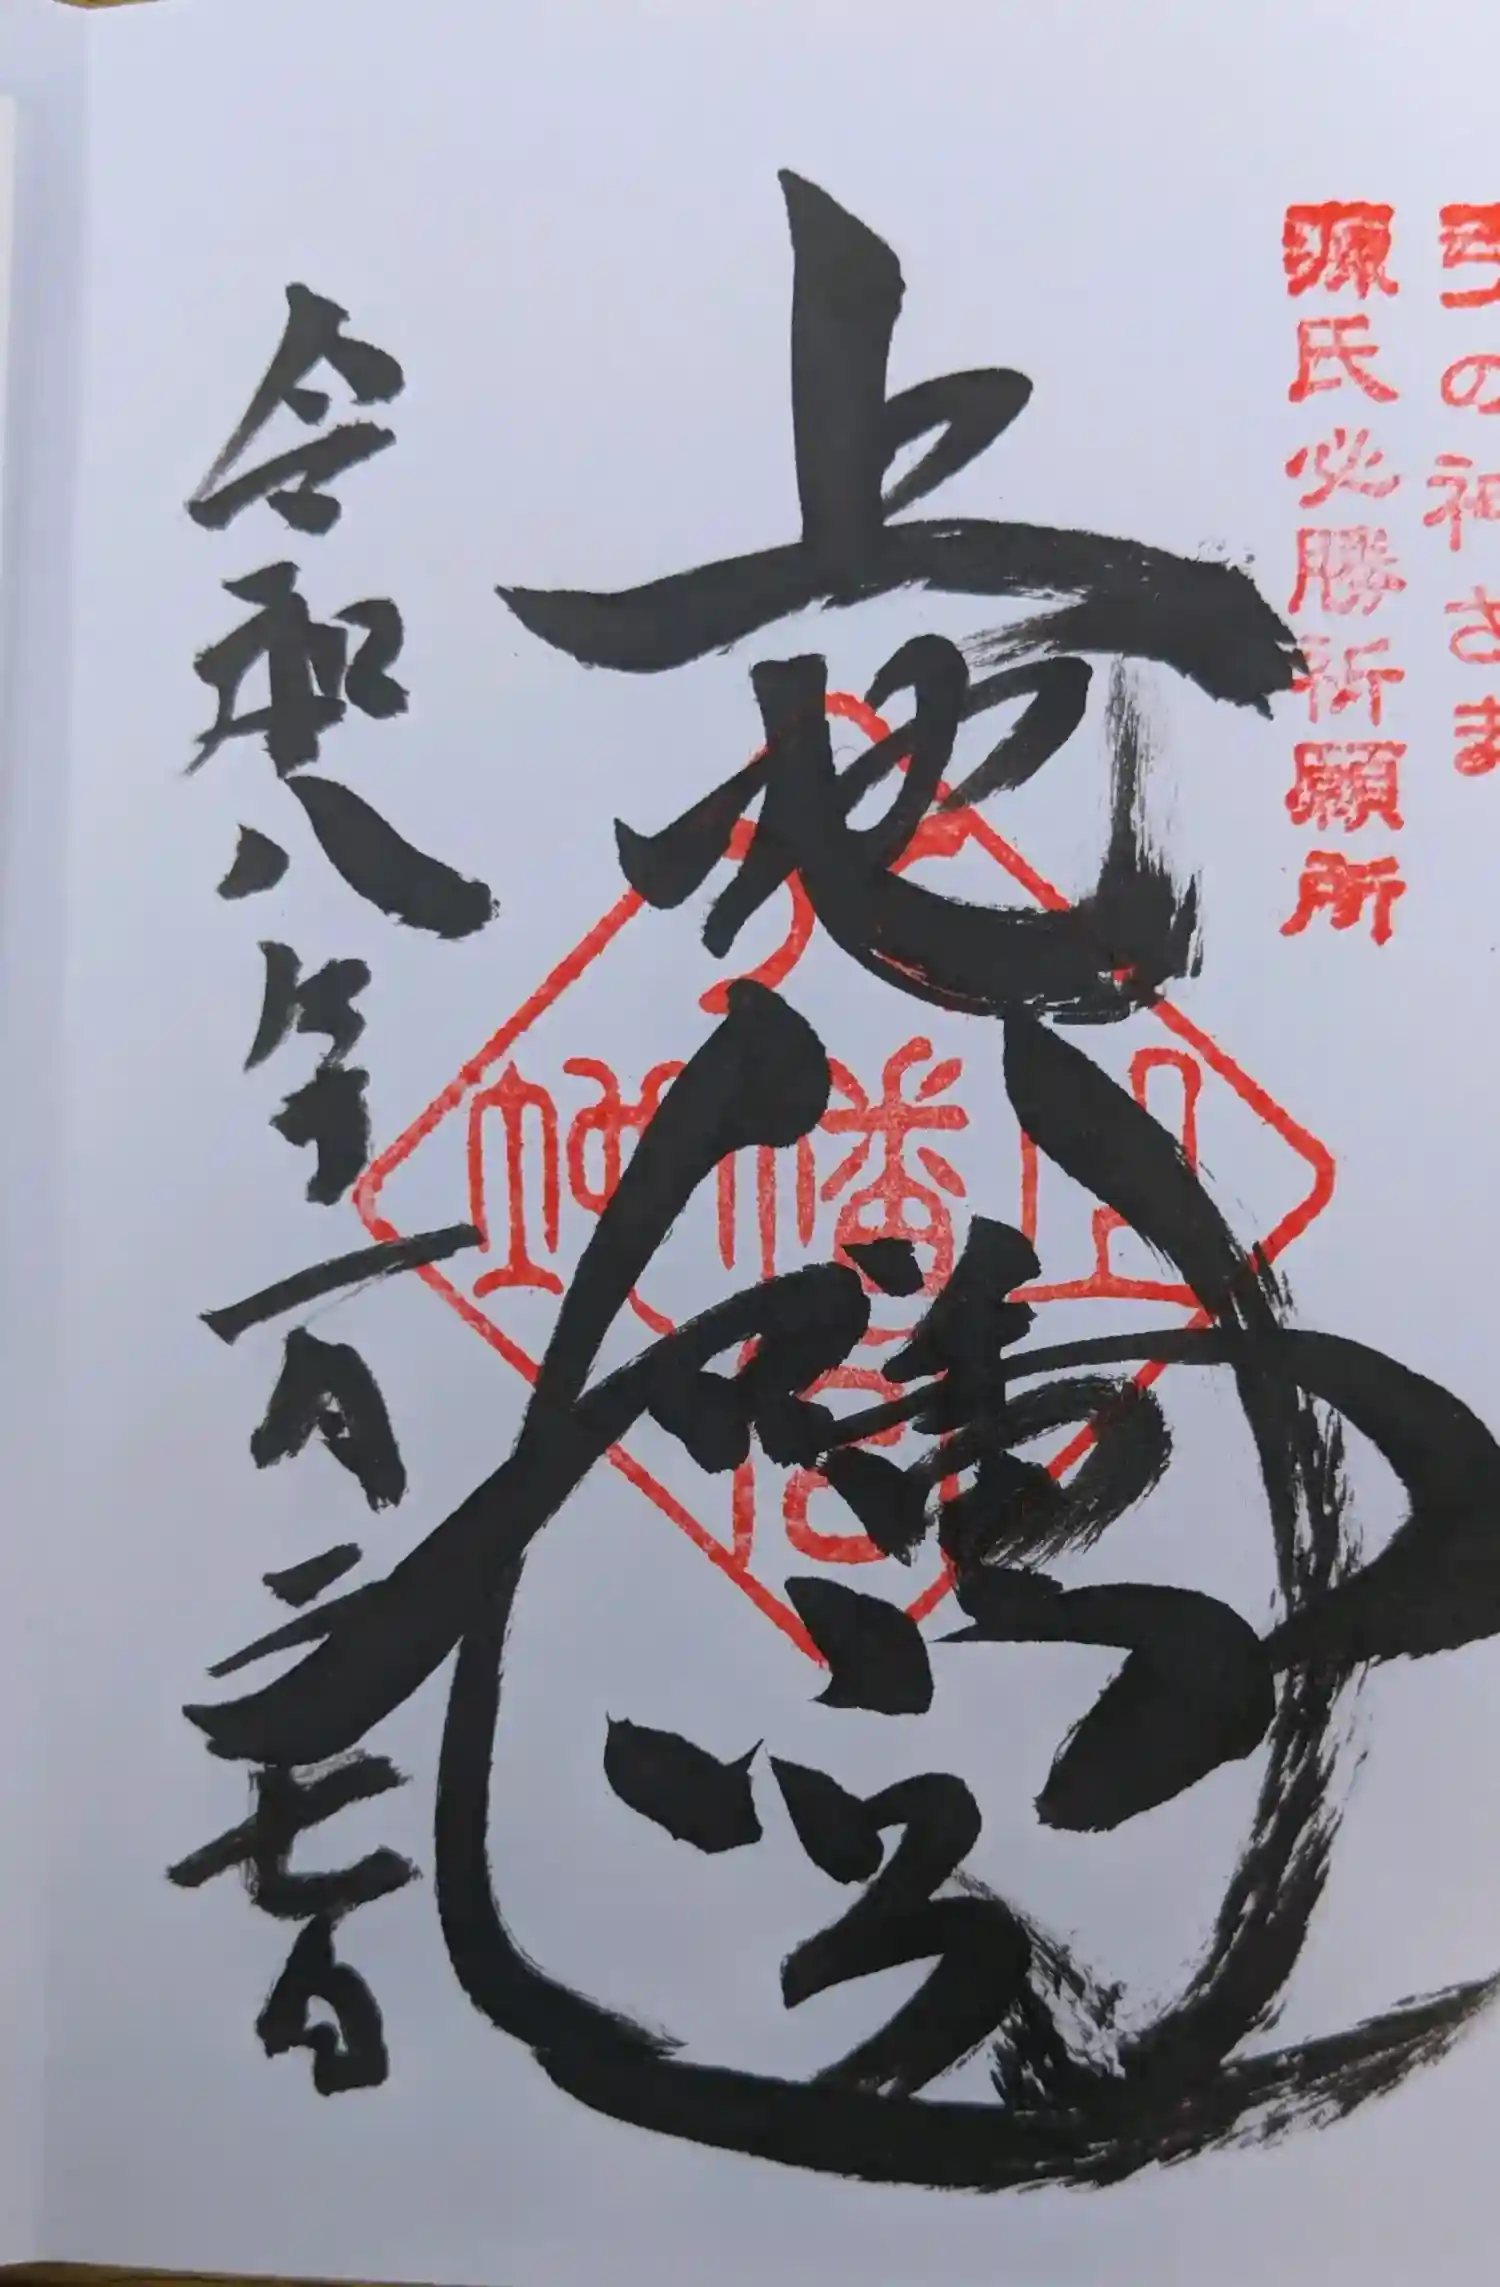 弓の神さま
源氏必勝祈願所
上地八幡宮
上地八幡宮
令和八年一月二十七日